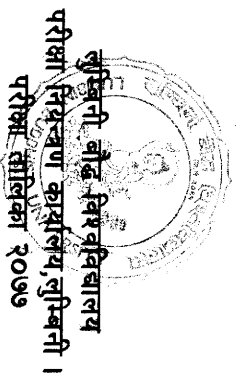 लुम्बिनी बौद्ध विश्वविद्यालय
परीक्षा नियन्त्रण कार्यालय,लुम्बिनी ।
परीक्षा तालिका २०७७